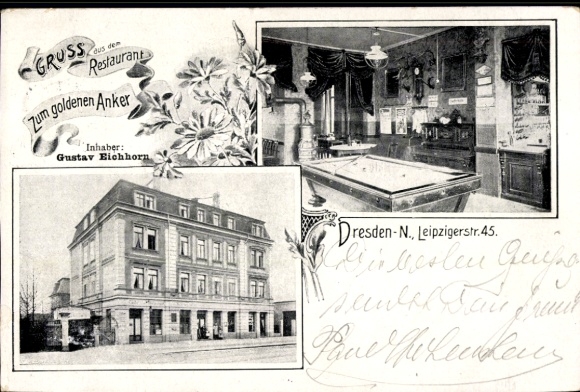 GRUSS aus dem
Restaurant
Zum goldenen Anker
Inhaber:
Gustav Eichhorn
Dresden-N., Leipzigerstr. 45.
die besten Grüße
sendet Dein Freund